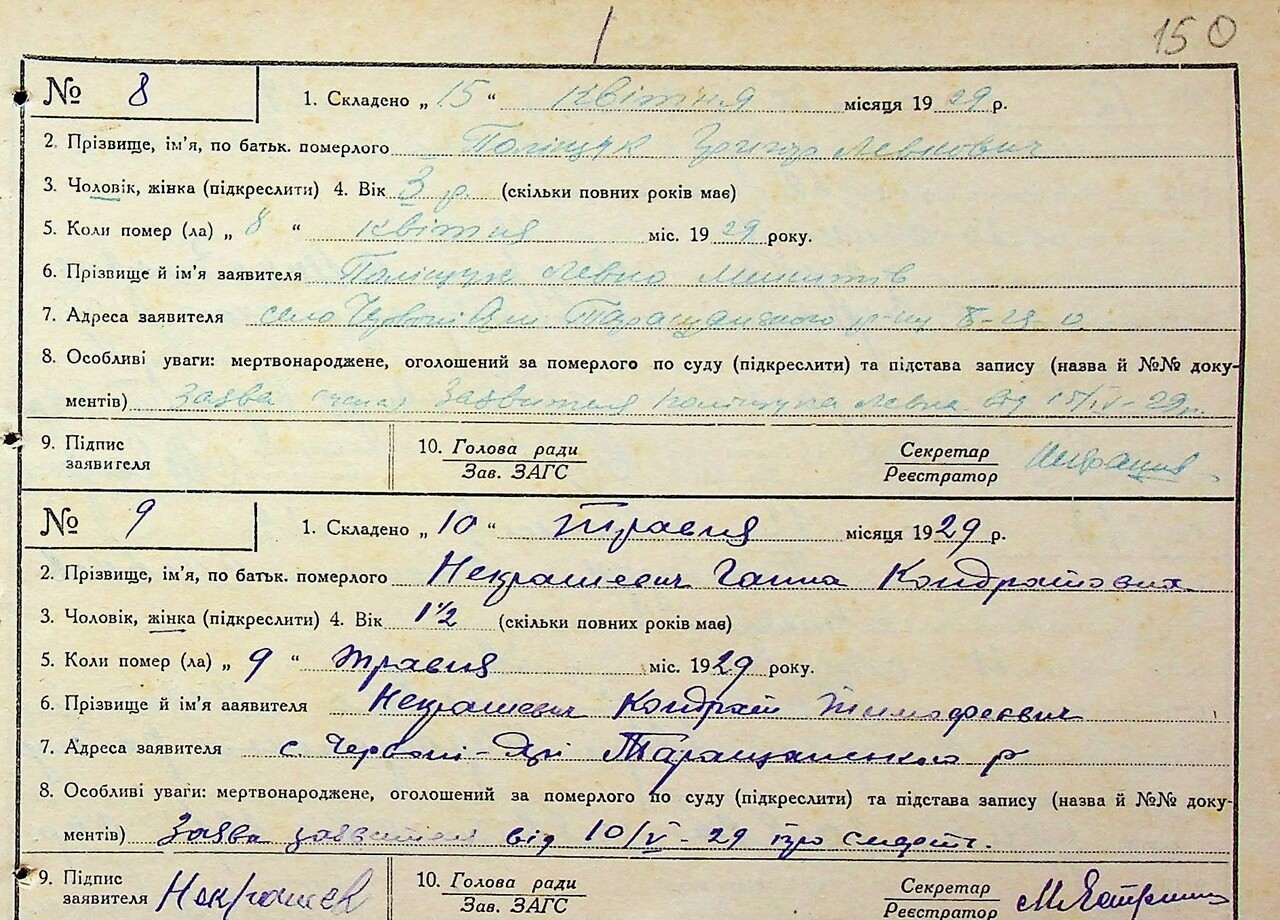 150
№ 8 1. Складено „ 15 “ квітня місяця 19 29 р.
2. Прізвище, ім'я, по батьк. померлого Поліщук Григор Левкович
3. Чоловік, жінка (підкреслити) 4. Вік 3 р. (скільки повних років має)
5. Коли помер (ла) „ 8 “ квітня міс. 19 29 року.
6. Прізвище й ім'я заявителя Поліщук Левко
7. Адреса заявителя село Червоні Яри Таращанского р-ну
8. Особливі уваги: мертвонароджене, оголошений за померлого по суду (підкреслити) та підстава запису (назва й №№ доку-
ментів) Заява заявителя Поліщука Левка від 15/IV-29р.
9. Підпис
заявителя
10. Голова ради
Зав. ЗАГС
Секретар
Реєстратор
№ 9 1. Складено „ 10 “ травня місяця 19 29 р.
2. Прізвище, ім'я, по батьк. померлого Некрашевич Ганна Кондратовна
3. Чоловік, жінка (підкреслити) 4. Вік 1½ (скільки повних років має)
5. Коли помер (ла) „ 9 “ травня міс. 19 29 року.
6. Прізвище й ім'я ааявителя Некрашевич Кондрат Тимофеєвич
7. Адреса заявителя с. Червоні- Таращанського р
8. Особливі уваги: мертвонароджене, оголошений за померлого по суду (підкреслити) та підстава запису (назва й №№ доку-
ментів) Заява заявителя від 10/V-29 про смерть.
9. Підпис
заявителя Некрашев
10. Голова ради
Зав. ЗАГС
Секретар
Реєстратор